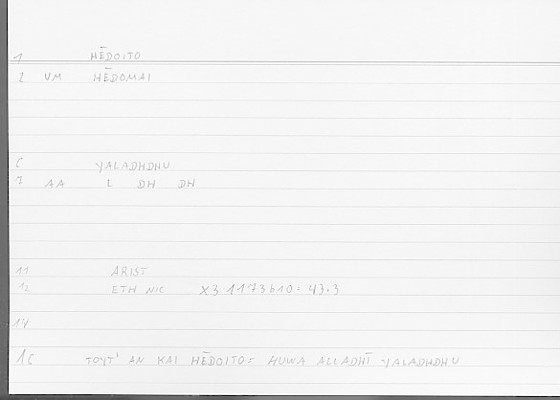 1 HĒDOITO
2 VM HĒDOMAI
6 YALADHDHU
7 AA L DH DH
11 ARIST
12 ETH NIC X3 1173b10 = 43.3
14
16 TOYT' AN KAI HĒDOITO = HUWA ALLADHĪ YALADHDHU